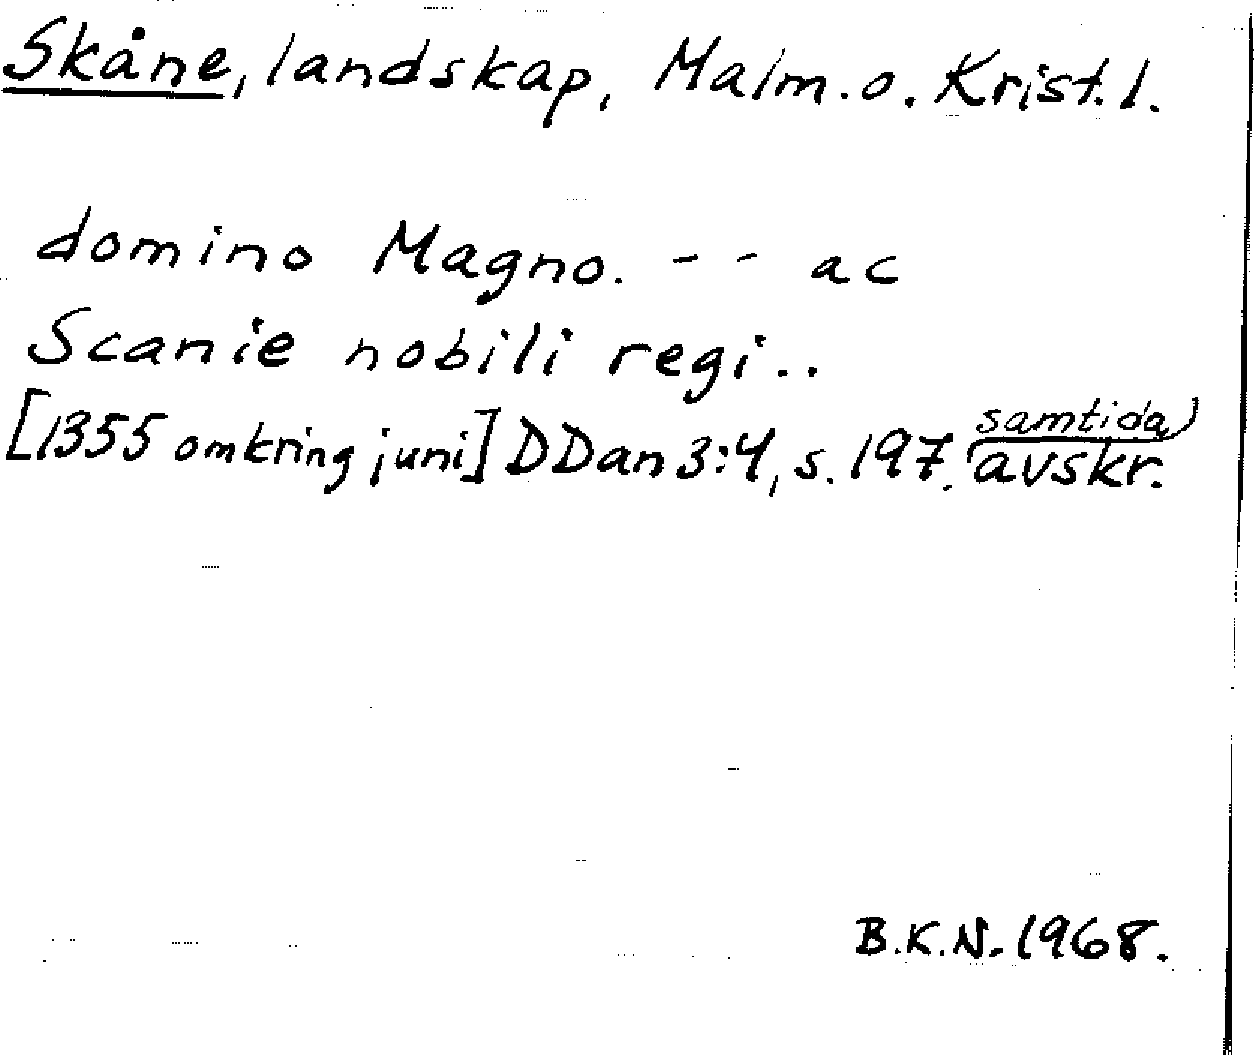 Skåne, landskap, Malm. o. Krist. l.
domino Magno. - - ac
Scanie nobili regi..
[1355 omkring juni] DDan 3:4, s. 197. samtida avskr.
B.K.N. 1968.